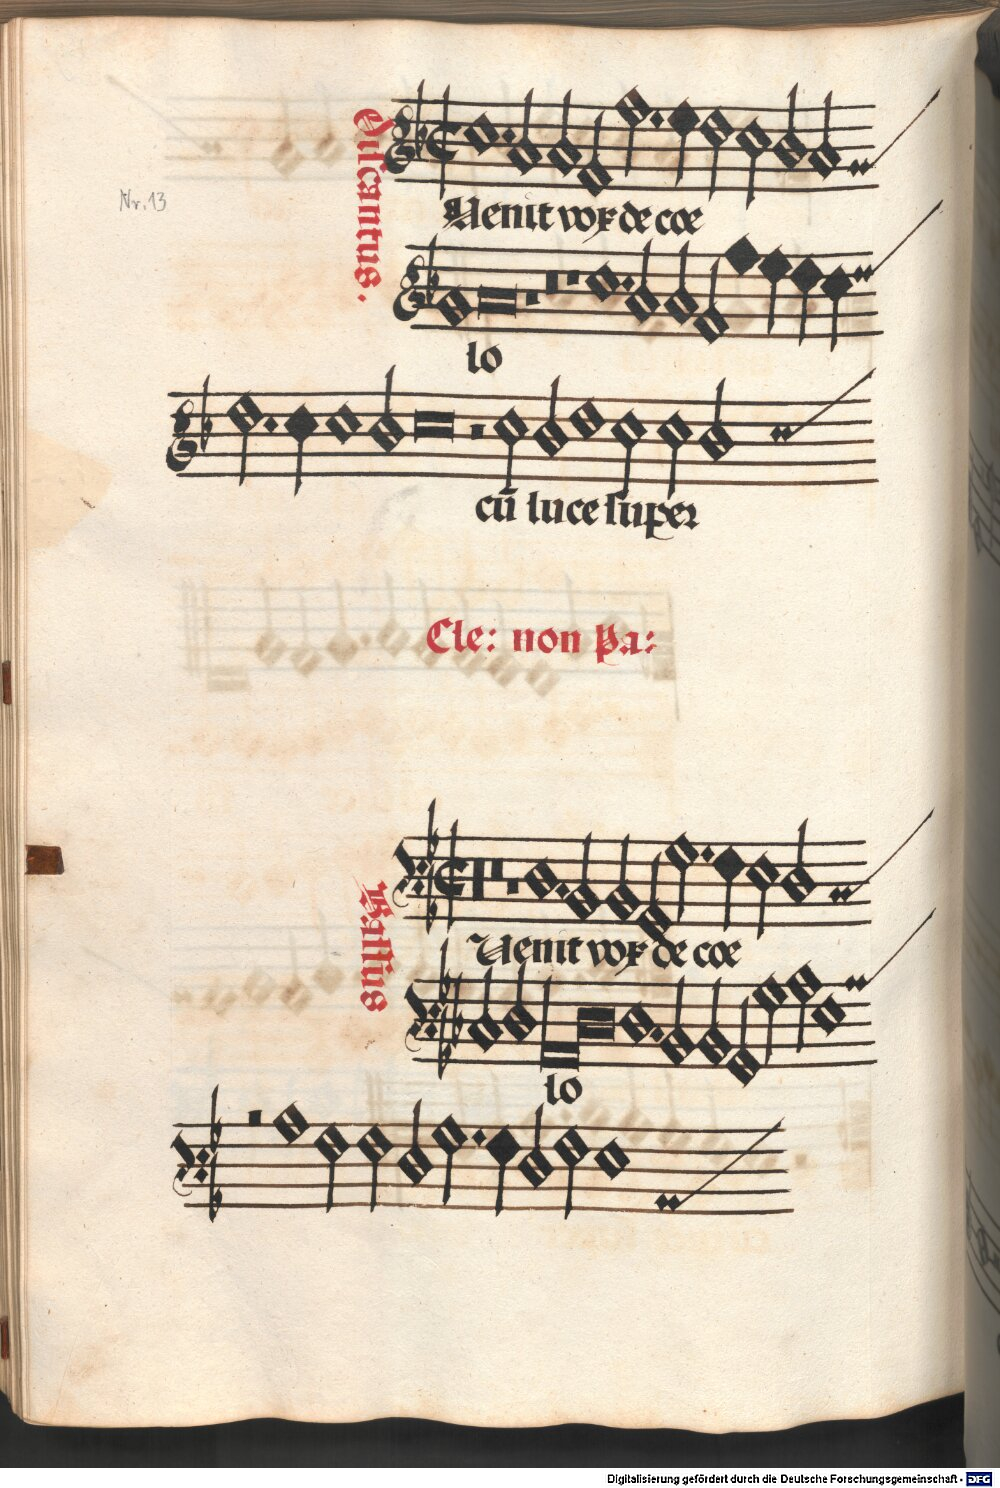 Discantus.
Nr. 13
Uenit vox de coe
lo
cū luce super
Cle: non Pa:
Bassus
Uenit vox de coe
lo
Digitalisierung gefördert durch die Deutsche Forschungsgemeinschaft - DFG